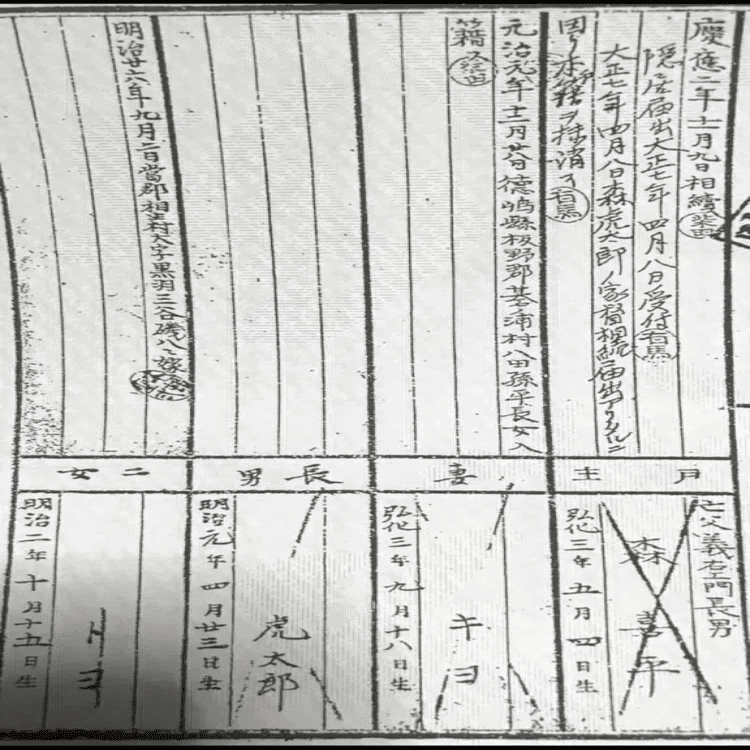 慶應二年十一月九日相續
隠居届出大正七年四月八日受付
有馬
大正七年四月八日森虎太郎ノ家督相続届出アリタルニ
因リ本籍ヲ抹消ス
有馬
元治元年十二月廿八日徳嶋縣板野郡基浦村八田孫平長女入
籍ス
明治廿六年九月二日當郡相生村大字黒羽三谷磯八ヘ嫁ス
主
月
妻
長男
二女
亡父義右エ門長男
森喜平
弘化三年五月四日生
キヨ
弘化三年九月十八日生
虎太郎
明治元年四月廿三日生
トヨ
明治二年十月十五日生